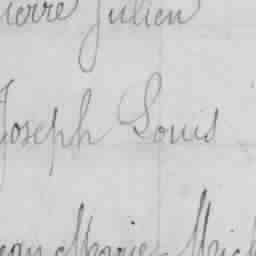 Pierre Julien
Joseph Louis
Jean Marie Mich